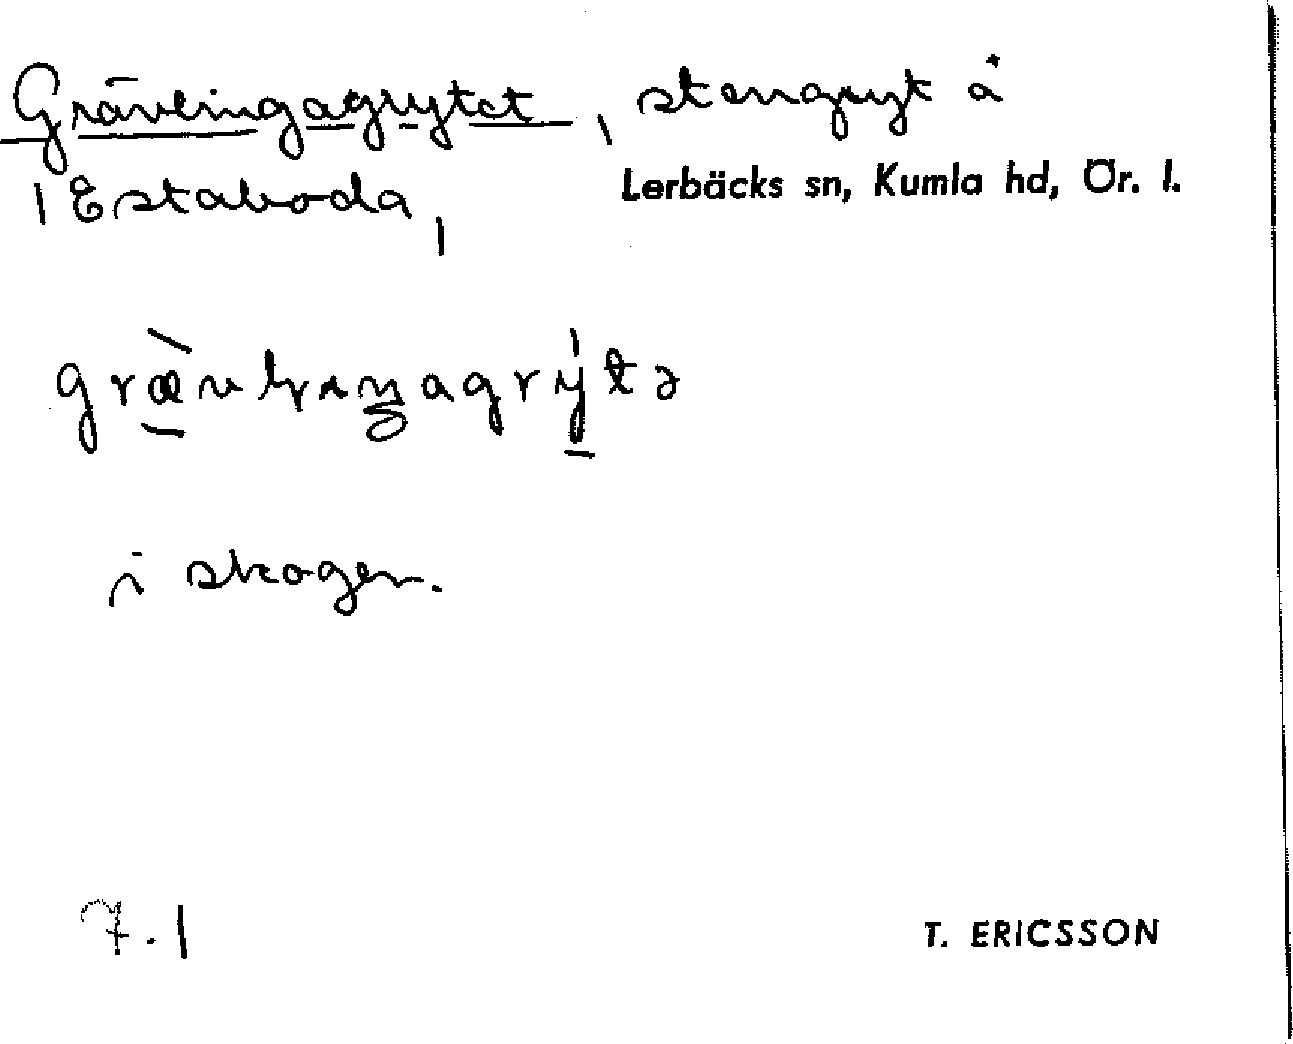 Grävlingagrytet, stengryt å
Lerbäcks sn, Kumla hd, Ör. l.
Estaboda,
i skogen.
7.1
T. ERICSSON